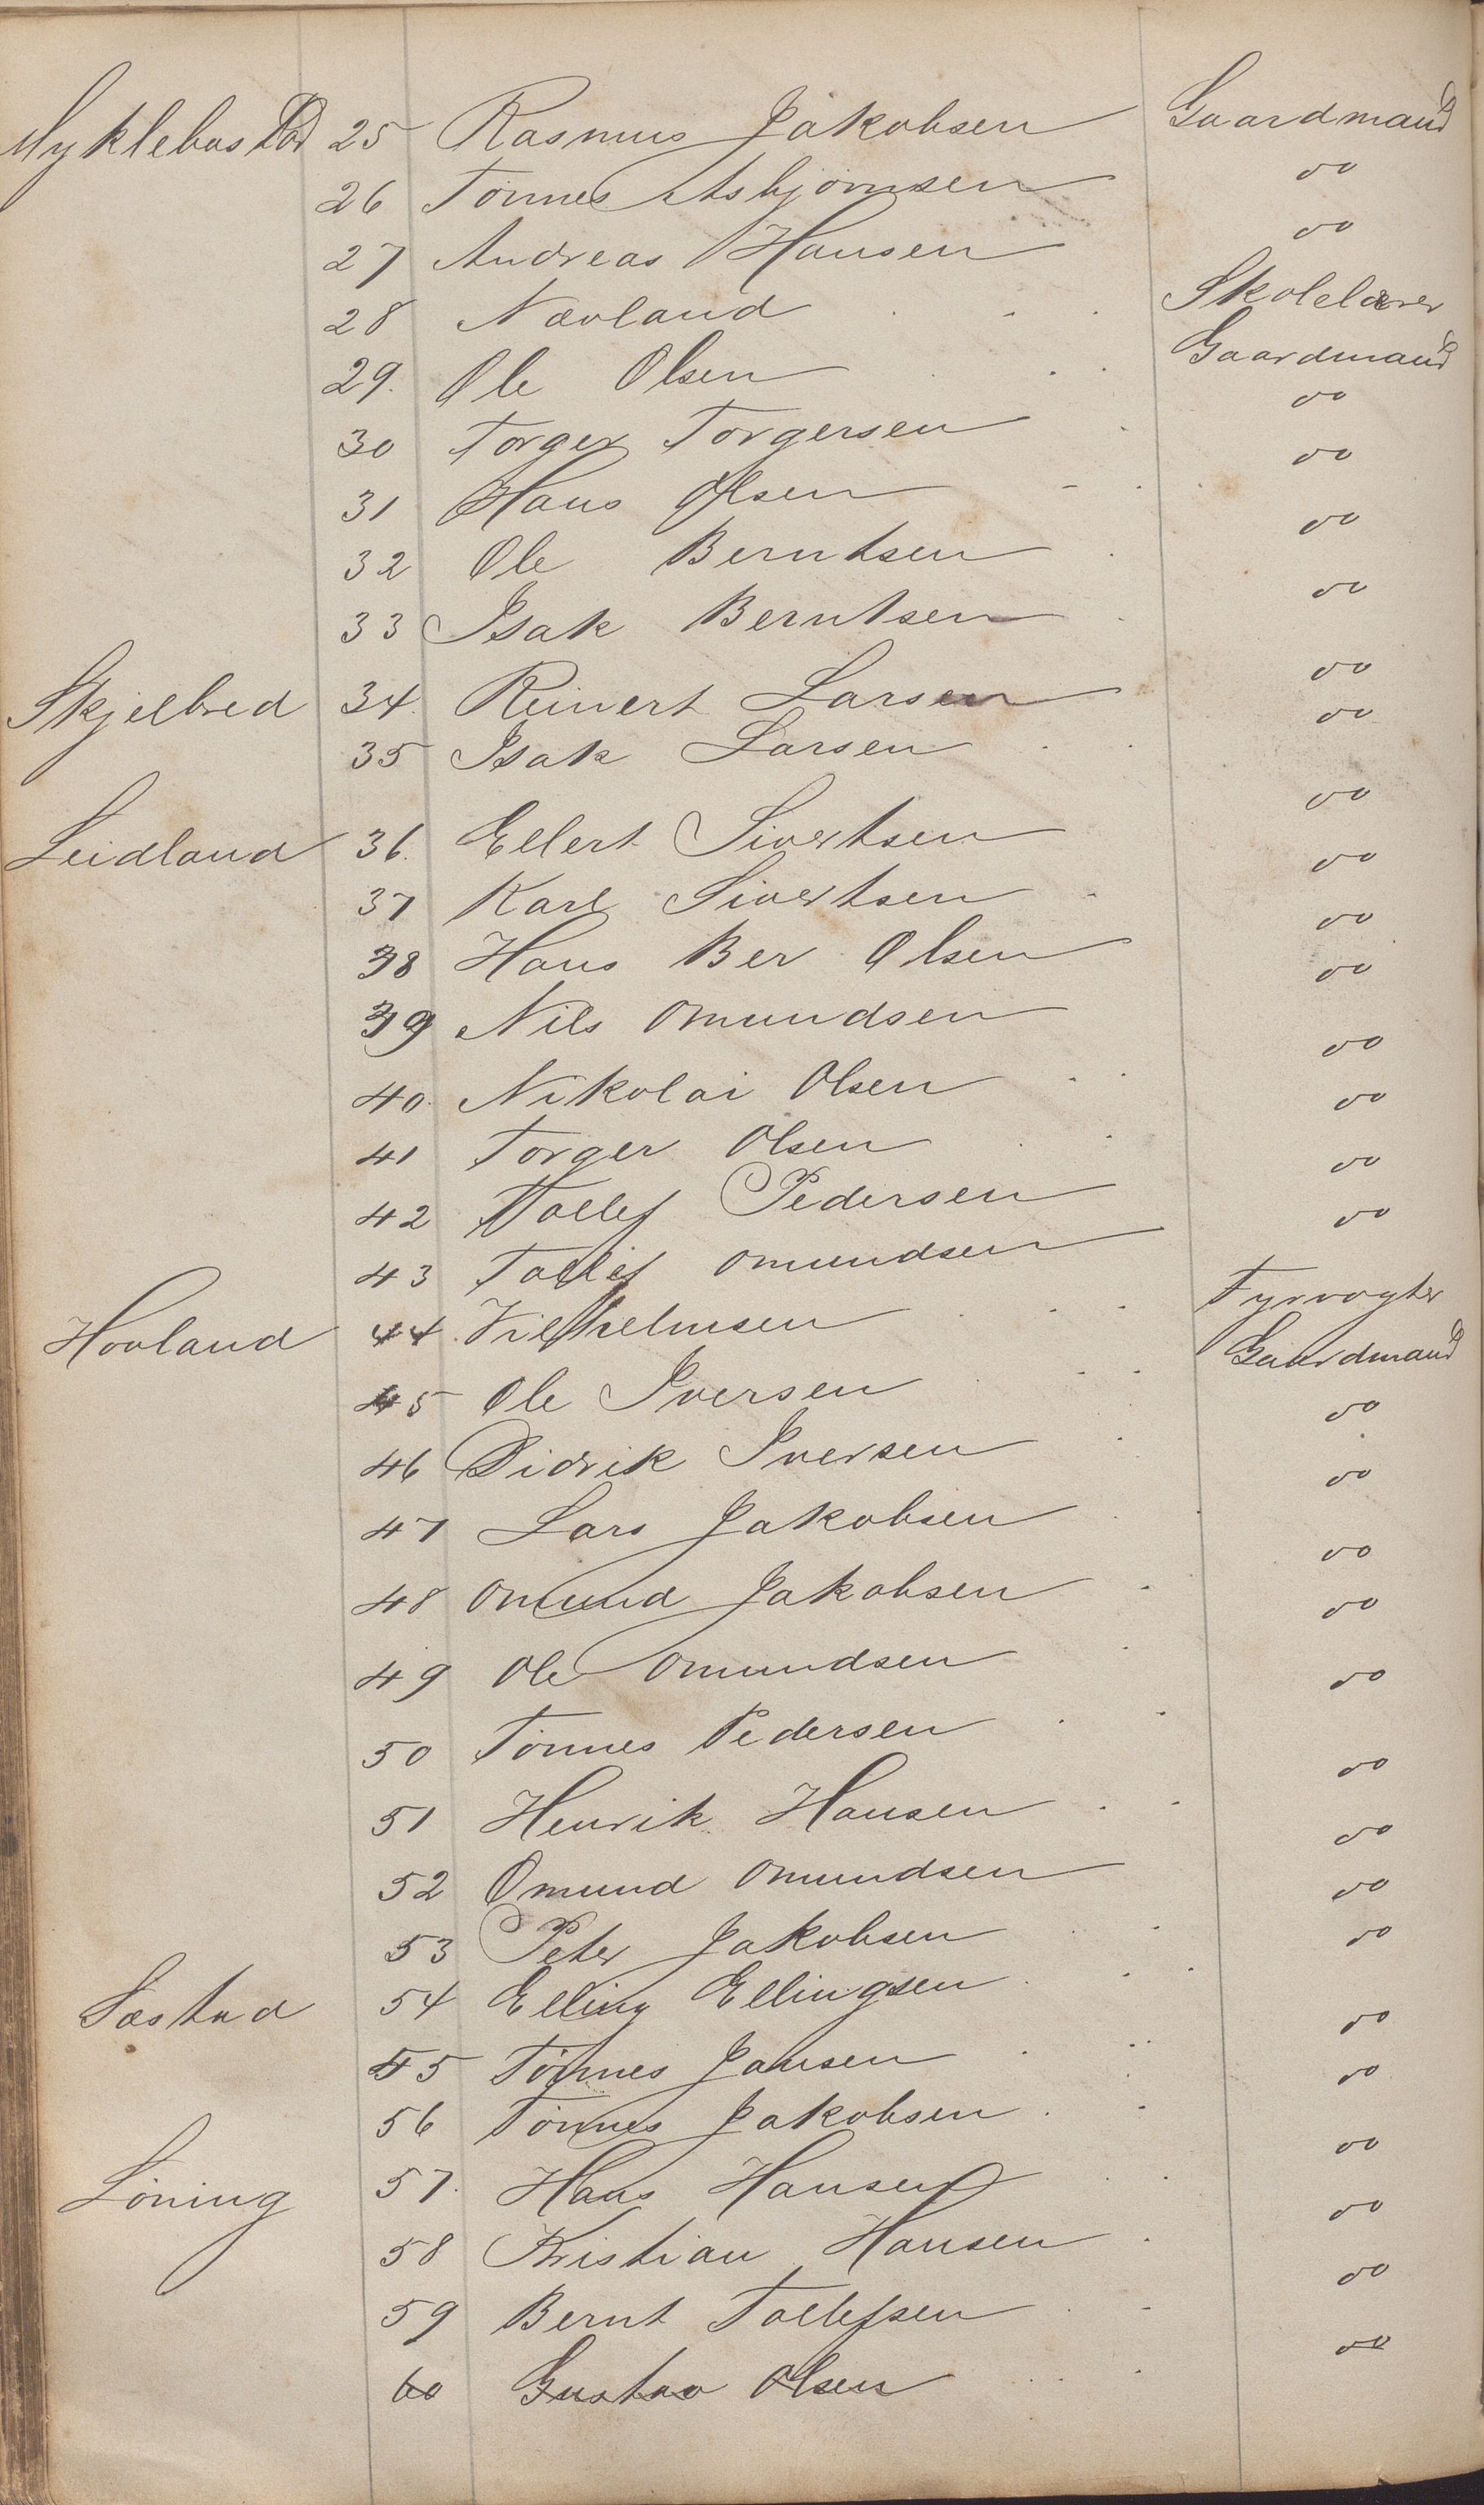 Myklebostad 25 Rasmus Jakobsen Gaardmand
26 Tönnes Asbjörnsen do
27 Andreas Hansen do
28 Nævland Skolelærer
29. Ole Olsen Gaardmand
30 Torger Torgersen do
31 Hans Olsen do
32 Ole Berntsen do
33 Isak Berntsen do
Skjelbred 34. Reinert Larsen do
35 Isak Larsen do
Leidland 36. Ellert Sivertsen do
37 Karl Sivertsen do
38 Hans Ber Olsen do
39 Nils Omundsen do
40. Nikolai Olsen do
41 Torger Olsen do
42 Tollef Pedersen do
43 Tollef Omundsen do
Hovland 44. Vilhelmsen Fyrvogter
45 Ole Iversen Gaardmand
46 Didrik Iversen do
47 Lars Jakobsen do
48 Omund Jakobsen do
49 Ole Omundsen do
50 Tönnes Pedersen do
51 Henrik Hansen do
52 Omund Omundsen do
53 Peter Jakobsen do
Sæstad 54 Elling Ellingsen do
55 Tönnes Jansen do
56 Tönnes Jakobsen do
Löning 57. Hans Hansen do
58 Kristian Hansen do
59 Bernt Tollefsen do
60 Gustav Olsen do